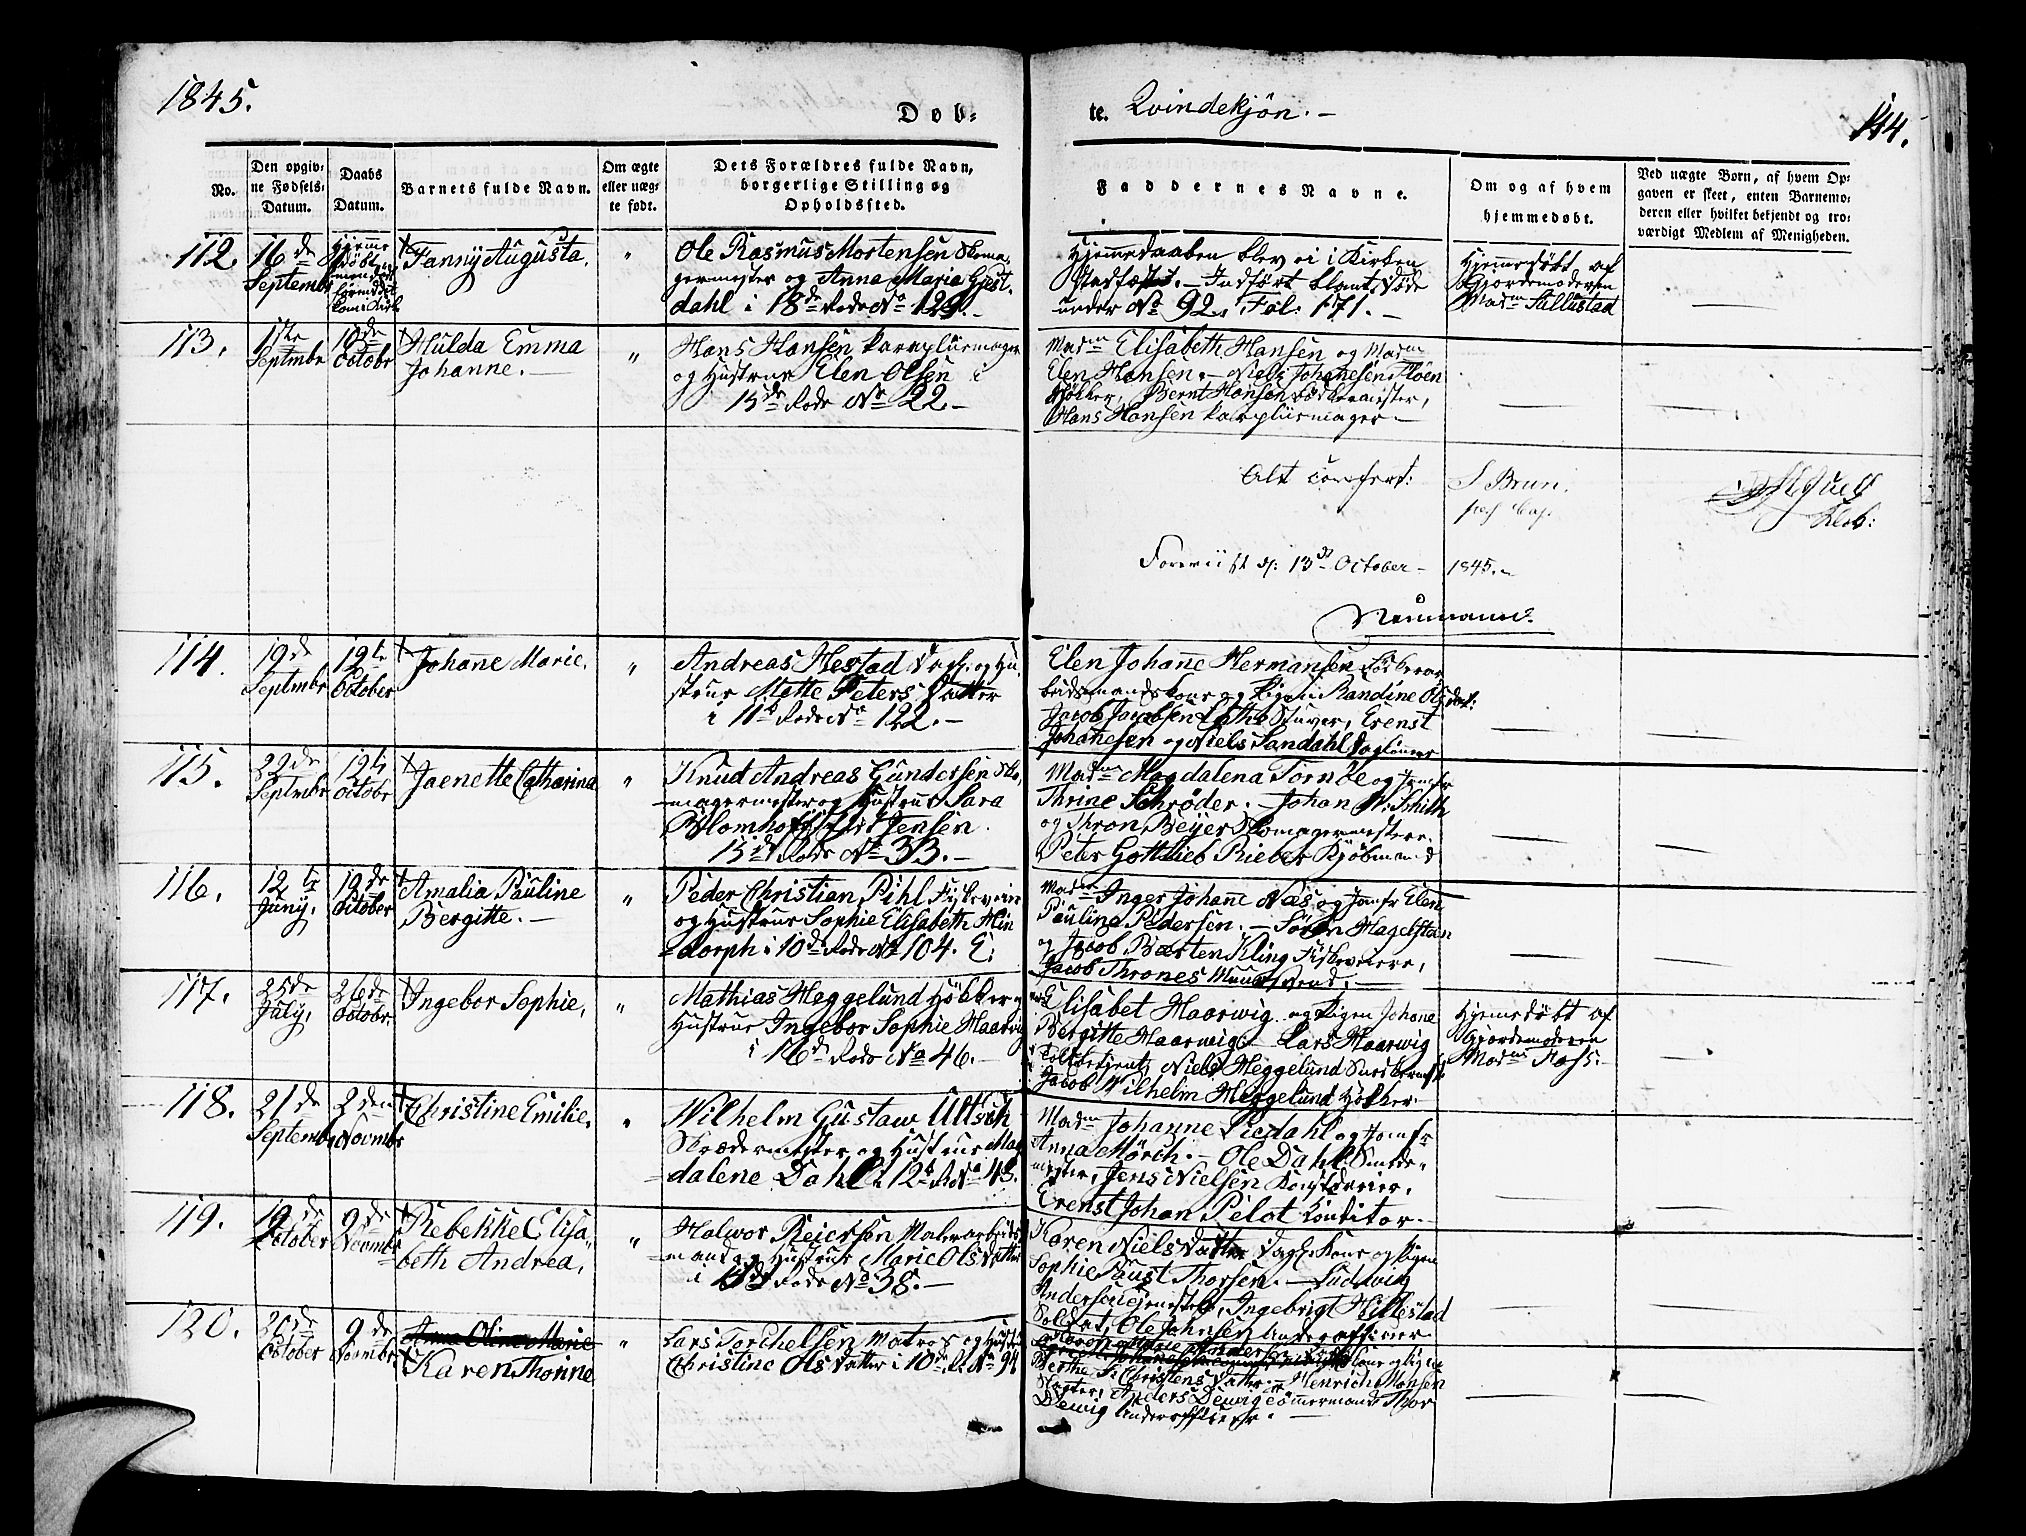 1845.
Döb-
te. Qvindekjön. -
114.
No.
Den opgiv-
ne Fødsels-
Datum.
Daabs
Datum.
Barnets fulde Navn.
Om ægte
eller uæg-
te født.
Dets Forældres fulde Navn,
borgerlige Stilling og
Opholdssted.
Faddernes Navne.
Om og af hvem
hjemmedøbt.
Ved uægte Børn, af hvem Op-
gaven er skeet, enten Barnemo-
deren eller hvilket bekjendt og tro-
værdigt Medlem af Menigheden.
112.
16de
Septembr
Hjemme
döbt
Fanny Augusta.
"
Ole Rasmus Mortensen Skoma-
germester og Anna Maria Gjest-
dahl i 18de Rode No 129. -
Hjemmedaaben blev ei i Kirken
Stadfæstet. - Indfört blant Döde
under No 92. Fol: 171. -
Hjemmedöbt af
Gjordemoderen
Madm Sallustad
113.
17te
Septmbr
10de
October
Hulda Emma
Johanne. -
"
Hans Hansen karvplüsmager
og Hustrue Elen Olsen i
15de Rode No 22. -
Madm Elisabeth Hansen og Madm
Elen Hansen. - Niels Johanesen Floen
Høkker, Bernt Hansen Fødkermester,
Hans Hansen karvplüsmager -
Alt confert:
S Brun.
pers Cap.
Klok:
Foreviist d: 13de October - 1845. -
Neumann
114.
19de
Septmbr
12te
October
Johane Marie,
"
Andreas Hestad Dagl: og Hu-
strue Mette Peters Datter
i 11te Rode No 122. -
Elen Johane Hermansen
beidsmands kone og Pigen Randine Ols dat:
Jacob Jacobsen Stuver, Erenst
Johanesen og Niels Sandahl Daglönner
115.
29de
Septmbr
12te
Octobr
Jaenette Catharina
"
Knud Andreas Gundersen Sko-
magermester og Hustrue Sara
Blomhoff Jensen.
15de Rode No 33. -
Madm Magdalena Tornöe og Jomfr
Thrine Schrøder. - Johan W: Smith
og Thron Beyer Skomagermestere.
Peter Gottlieb Rieber Kjöbmand
116.
12te
Juny,
19de
October
Amalia Pauline
Bergitte. -
"
Peder Christian Pihl Fiskeveier
og Hustrue Sophie Elisabeth Min
dorph i 10de Rode No 104. E:
Madm Inger Johane Næs og Jomfr Elen
Pauline Pedersen. - Sören Hagelstan
og Jacob Boerten Kling Fiskeveiere,
Jacob Thrones Muursvend. -
117.
25de
July,
26de
Octobr.
Ingebor Sophie,
"
Mathias Heggelund Høkker og
Hustrue Ingebor Sophie Maarwig
i 16de Rode No 46. -
Elisabet Maarwig og Pigen Johane
Bergitte Maarwig. - Lars Maarwig
Toldbetjent, Niels Heggelund Snedkermstr
Jacob Wilhelm Heggelund Høkker.
Hjemedöbt af
Gjordemoderen
Madm Hass.
118.
21de
Septembr
2den
Novmbr
Christine Emilie,
"
Wilhelm Gustaw Ultsch
Skrædermester og Hustrue Mag
dalene Dahl i 12te R: No 43.
Madm Johanne Liedahl og Jomfr
Anna Mörch. - Ole Dahl Smede-
mester, Jens Nielsen Kunstdreier,
Erenst Johan Pelot konditor. -
119.
19de
October
9de
Novmbr
Rebekke Elisa-
beth Andrea,
"
Halvor Reiersen
mand og Hustrue Marie Ols Datter
i Rode No 38. -
Karen Niels Datter Dagl: kone og Pigen
Sophie Paust Thorsen. - Ludwig
Andersen Tjenestek., Ingebrigt Hillestad
Soldat, Ole Johnsen Underofficier
120.
20de
October
9de
Novmbr
Anna Oline Marie
Karen Thorine
"
Lars Torchelsen Matros og Hustr
Christine Ols Datter i 10de R: No 94
Berthe Christens Datter. - Henrich Monsen
Slagter, Anders Dewig Tömermand Thor
Dewig Underofficier. -